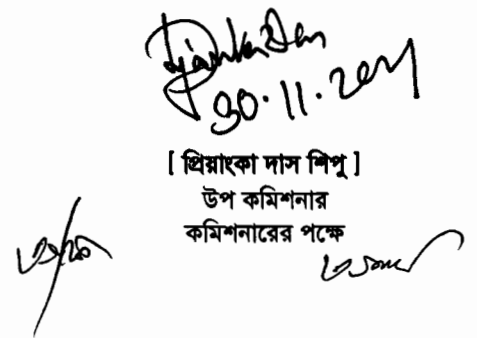 30.11.2021
[ প্রিয়াংকা দাস শিপু ]
উপ কমিশনার
কমিশনারের পক্ষে